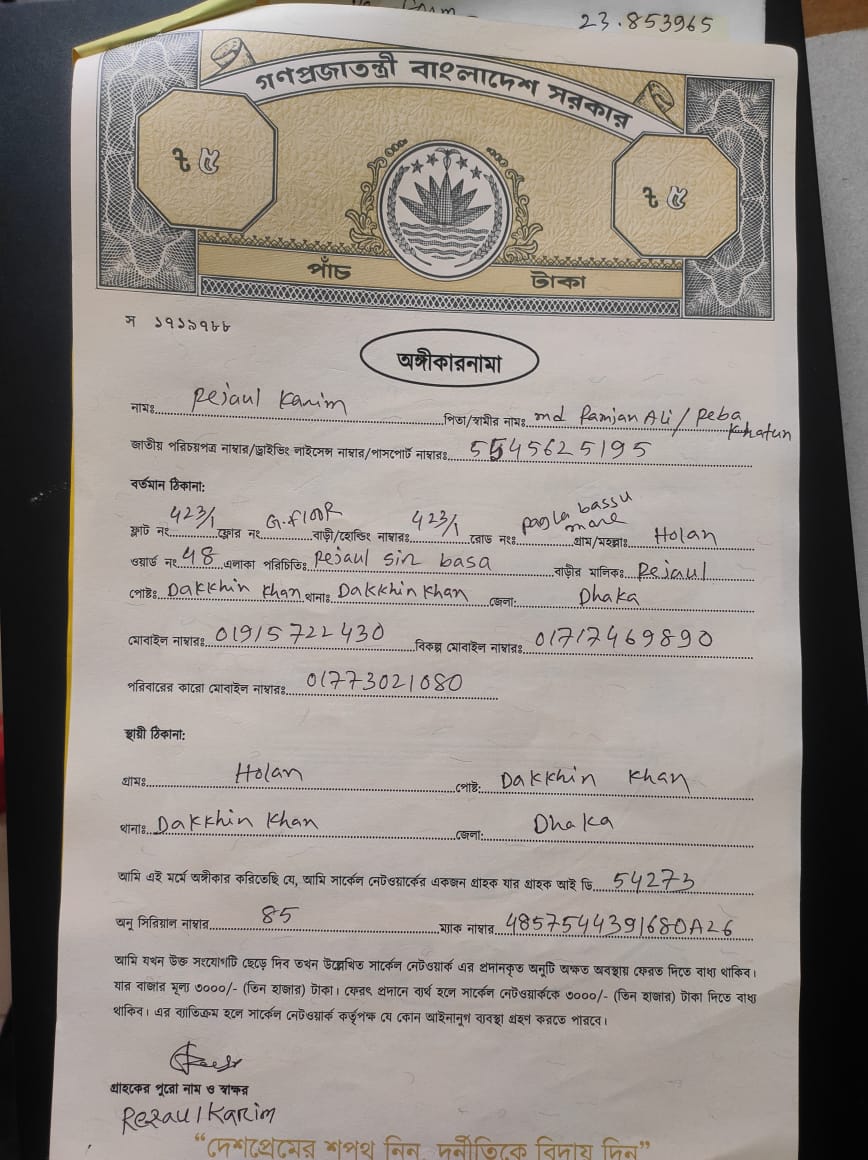 23.853965
গণপ্রজাতন্ত্রী বাংলাদেশ সরকার
৳ ৫
৳ ৫
পাঁচ টাকা
স ১৭১৯৭৮৮
অঙ্গীকারনামা
নামঃ Rejaul Karim পিতা/স্বামীর নামঃ md Ramjan Ali / Reba Khatun
জাতীয় পরিচয়পত্র নাম্বার/ড্রাইভিং লাইসেন্স নাম্বার/পাসপোর্ট নাম্বারঃ 5545625195
বর্তমান ঠিকানা:
ফ্লাট নং 423/1 ফ্লোর নং G.flooR বাড়ী/হোল্ডিং নাম্বারঃ 423/1 রোড নংঃ pagla bassu more গ্রাম/মহল্লাঃ Holan
ওয়ার্ড নং 48 এলাকা পরিচিতিঃ Rejaul sir basa বাড়ীর মালিকঃ Rejaul
পোষ্টঃ Dakkhin Khan থানাঃ Dakkhin Khan জেলা: Dhaka
মোবাইল নাম্বারঃ 01915722430 বিকল্প মোবাইল নাম্বারঃ 01717469890
পরিবারের কারো মোবাইল নাম্বারঃ 01773021080
স্থায়ী ঠিকানা:
গ্রামঃ Holan পোষ্ট: Dakkhin Khan
থানাঃ Dakkhin Khan জেলা: Dhaka
আমি এই মর্মে অঙ্গীকার করিতেছি যে, আমি সার্কেল নেটওয়ার্কের একজন গ্রাহক যার গ্রাহক আই ডি 54273
অনু সিরিয়াল নাম্বার 85 ম্যাক নাম্বার 4857544391680A26
আমি যখন উক্ত সংযোগটি ছেড়ে দিব তখন উল্লেখিত সার্কেল নেটওয়ার্ক এর প্রদানকৃত অনুটি অক্ষত অবস্থায় ফেরত দিতে বাধ্য থাকিব।
যার বাজার মূল্য ৩০০০/- (তিন হাজার) টাকা। ফেরৎ প্রদানে ব্যর্থ হলে সার্কেল নেটওয়ার্ককে ৩০০০/- (তিন হাজার) টাকা দিতে বাধ্য
থাকিব। এর ব্যতিক্রম হলে সার্কেল নেটওয়ার্ক কর্তৃপক্ষ যে কোন আইনানুগ ব্যবস্থা গ্রহণ করতে পারবে।
গ্রাহকের পুরো নাম ও স্বাক্ষর
Rezaul Karim
“দেশপ্রেমের শপথ নিন, দুর্নীতিকে বিদায় দিন”